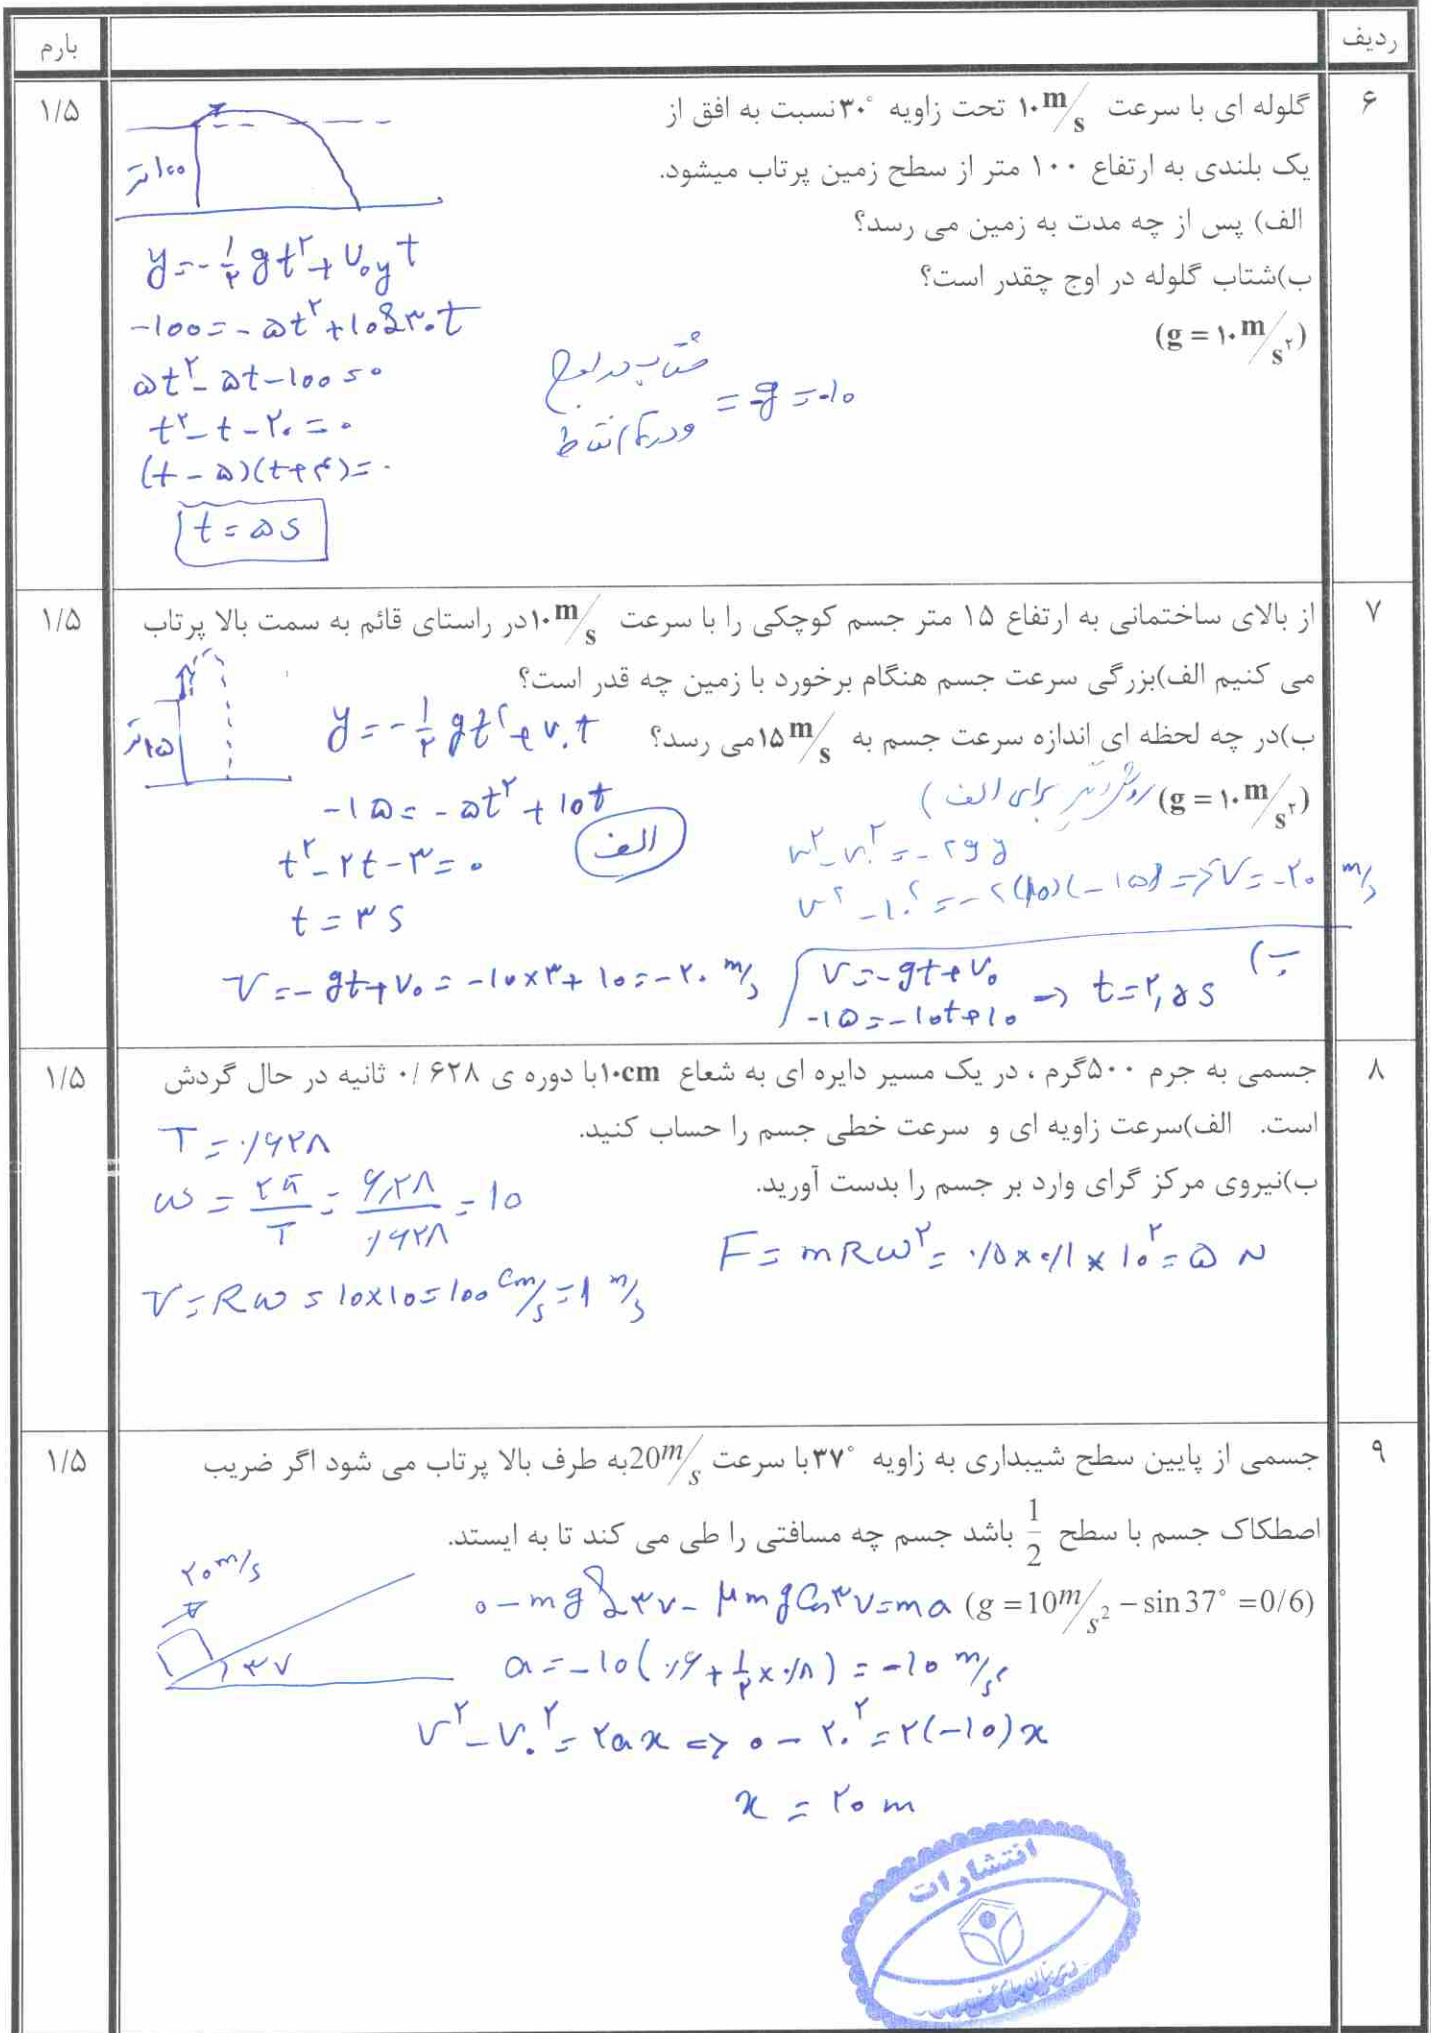 ردیف
بارم
۶
۱/۵
گلوله ای با سرعت ۱۰ m/s تحت زاویه ۳۰° نسبت به افق از
یک بلندی به ارتفاع ۱۰۰ متر از سطح زمین پرتاب میشود.
الف) پس از چه مدت به زمین می رسد؟
ب)شتاب گلوله در اوج چقدر است؟
(g = ۱۰ m/s²)
۱۰۰ متر
y = -½ gt² + v₀y t
-۱۰۰ = -۵t² + ۱۰ sin۳۰ t
۵t² - ۵t - ۱۰۰ = ۰
t² - t - ۲۰ = ۰
(t - ۵)(t + ۴) = ۰
t = ۵ s
شتاب در اوج
و در تمام نقاط = -g = -۱۰
۷
۱/۵
از بالای ساختمانی به ارتفاع ۱۵ متر جسم کوچکی را با سرعت ۱۰ m/s در راستای قائم به سمت بالا پرتاب
می کنیم الف)بزرگی سرعت جسم هنگام برخورد با زمین چه قدر است؟
ب)در چه لحظه ای اندازه سرعت جسم به ۱۵ m/s می رسد؟
(g = ۱۰ m/s²)
۱۵ متر
y = -½ gt² + v₀t
-۱۵ = -۵t² + ۱۰t
الف
t² - ۲t - ۳ = ۰
t = ۳ s
v = -gt + v₀ = -۱۰×۳ + ۱۰ = -۲۰ m/s
روش دیگر برای الف)
v² - v₀² = -۲gy
v² - ۱۰² = -۲(۱۰)(-۱۵) => v = -۲۰ m/s
ب)
v = -gt + v₀
-۱۵ = -۱۰t + ۱۰ => t = ۲,۵ s
۸
۱/۵
جسمی به جرم ۵۰۰گرم ، در یک مسیر دایره ای به شعاع ۱۰cm با دوره ی ۰/۶۲۸ ثانیه در حال گردش
است. الف)سرعت زاویه ای و سرعت خطی جسم را حساب کنید.
ب)نیروی مرکز گرای وارد بر جسم را بدست آورید.
T = ۰/۶۲۸
ω = ۲π/T = ۶,۲۸/۰/۶۲۸ = ۱۰
v = Rω = ۱۰×۱۰ = ۱۰۰ cm/s = ۱ m/s
F = mRω² = ۰/۵ × ۰/۱ × ۱۰² = ۵ N
۹
۱/۵
جسمی از پایین سطح شیبداری به زاویه ۳۷° با سرعت 20 m/s به طرف بالا پرتاب می شود اگر ضریب
اصطکاک جسم با سطح 1/2 باشد جسم چه مسافتی را طی می کند تا به ایستد.
(g = 10 m/s² - sin 37° = 0/6)
۲۰ m/s
۳۷
۰ - mg sin۳۷ - μmg cos۳۷ = ma
a = -۱۰(۰/۶ + ½ × ۰/۸) = -۱۰ m/s²
v² - v₀² = ۲ax => ۰ - ۲۰² = ۲(-۱۰)x
x = ۲۰ m
انتشارات